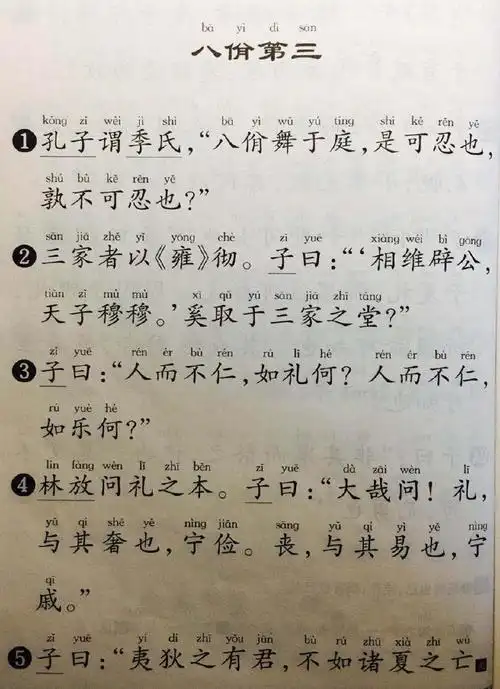 bā yì dì sān
八佾第三
kǒng zǐ wèi jì shì bā yì wǔ yú tíng shì kě rěn yě
❶孔子谓季氏，“八佾舞于庭，是可忍也，
shú bù kě rěn yě
孰不可忍也？”
sān jiā zhě yǐ yōng chè zǐ yuē xiàng wéi bì gōng
❷三家者以《雍》彻。子曰：“‘相维辟公，
tiān zǐ mù mù xī qǔ yú sān jiā zhī táng
天子穆穆。’奚取于三家之堂？”
zǐ yuē rén ér bù rén rú lǐ hé rén ér bù rén
❸子曰：“人而不仁，如礼何？人而不仁，
rú yuè hé
如乐何？”
lín fàng wèn lǐ zhī běn zǐ yuē dà zāi wèn lǐ
❹林放问礼之本。子曰：“大哉问！礼，
yǔ qí shē yě nìng jiǎn sāng yǔ qí yì yě nìng
与其奢也，宁俭。丧，与其易也，宁
qī
戚。”
zǐ yuē yí dí zhī yǒu jūn bù rú zhū xià zhī wú
❺子曰：“夷狄之有君，不如诸夏之亡